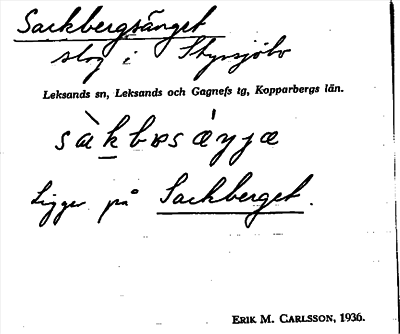 Sackbergsänget
slog i Styrsjöbo
Leksands sn, Leksands och Gagnefs tg, Kopparbergs län.
Ligger på Sackberget.
ERIK M. CARLSSON, 1936.